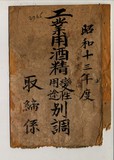 昭和十三年度
工業用酒精
変性
用途
別調
取締係